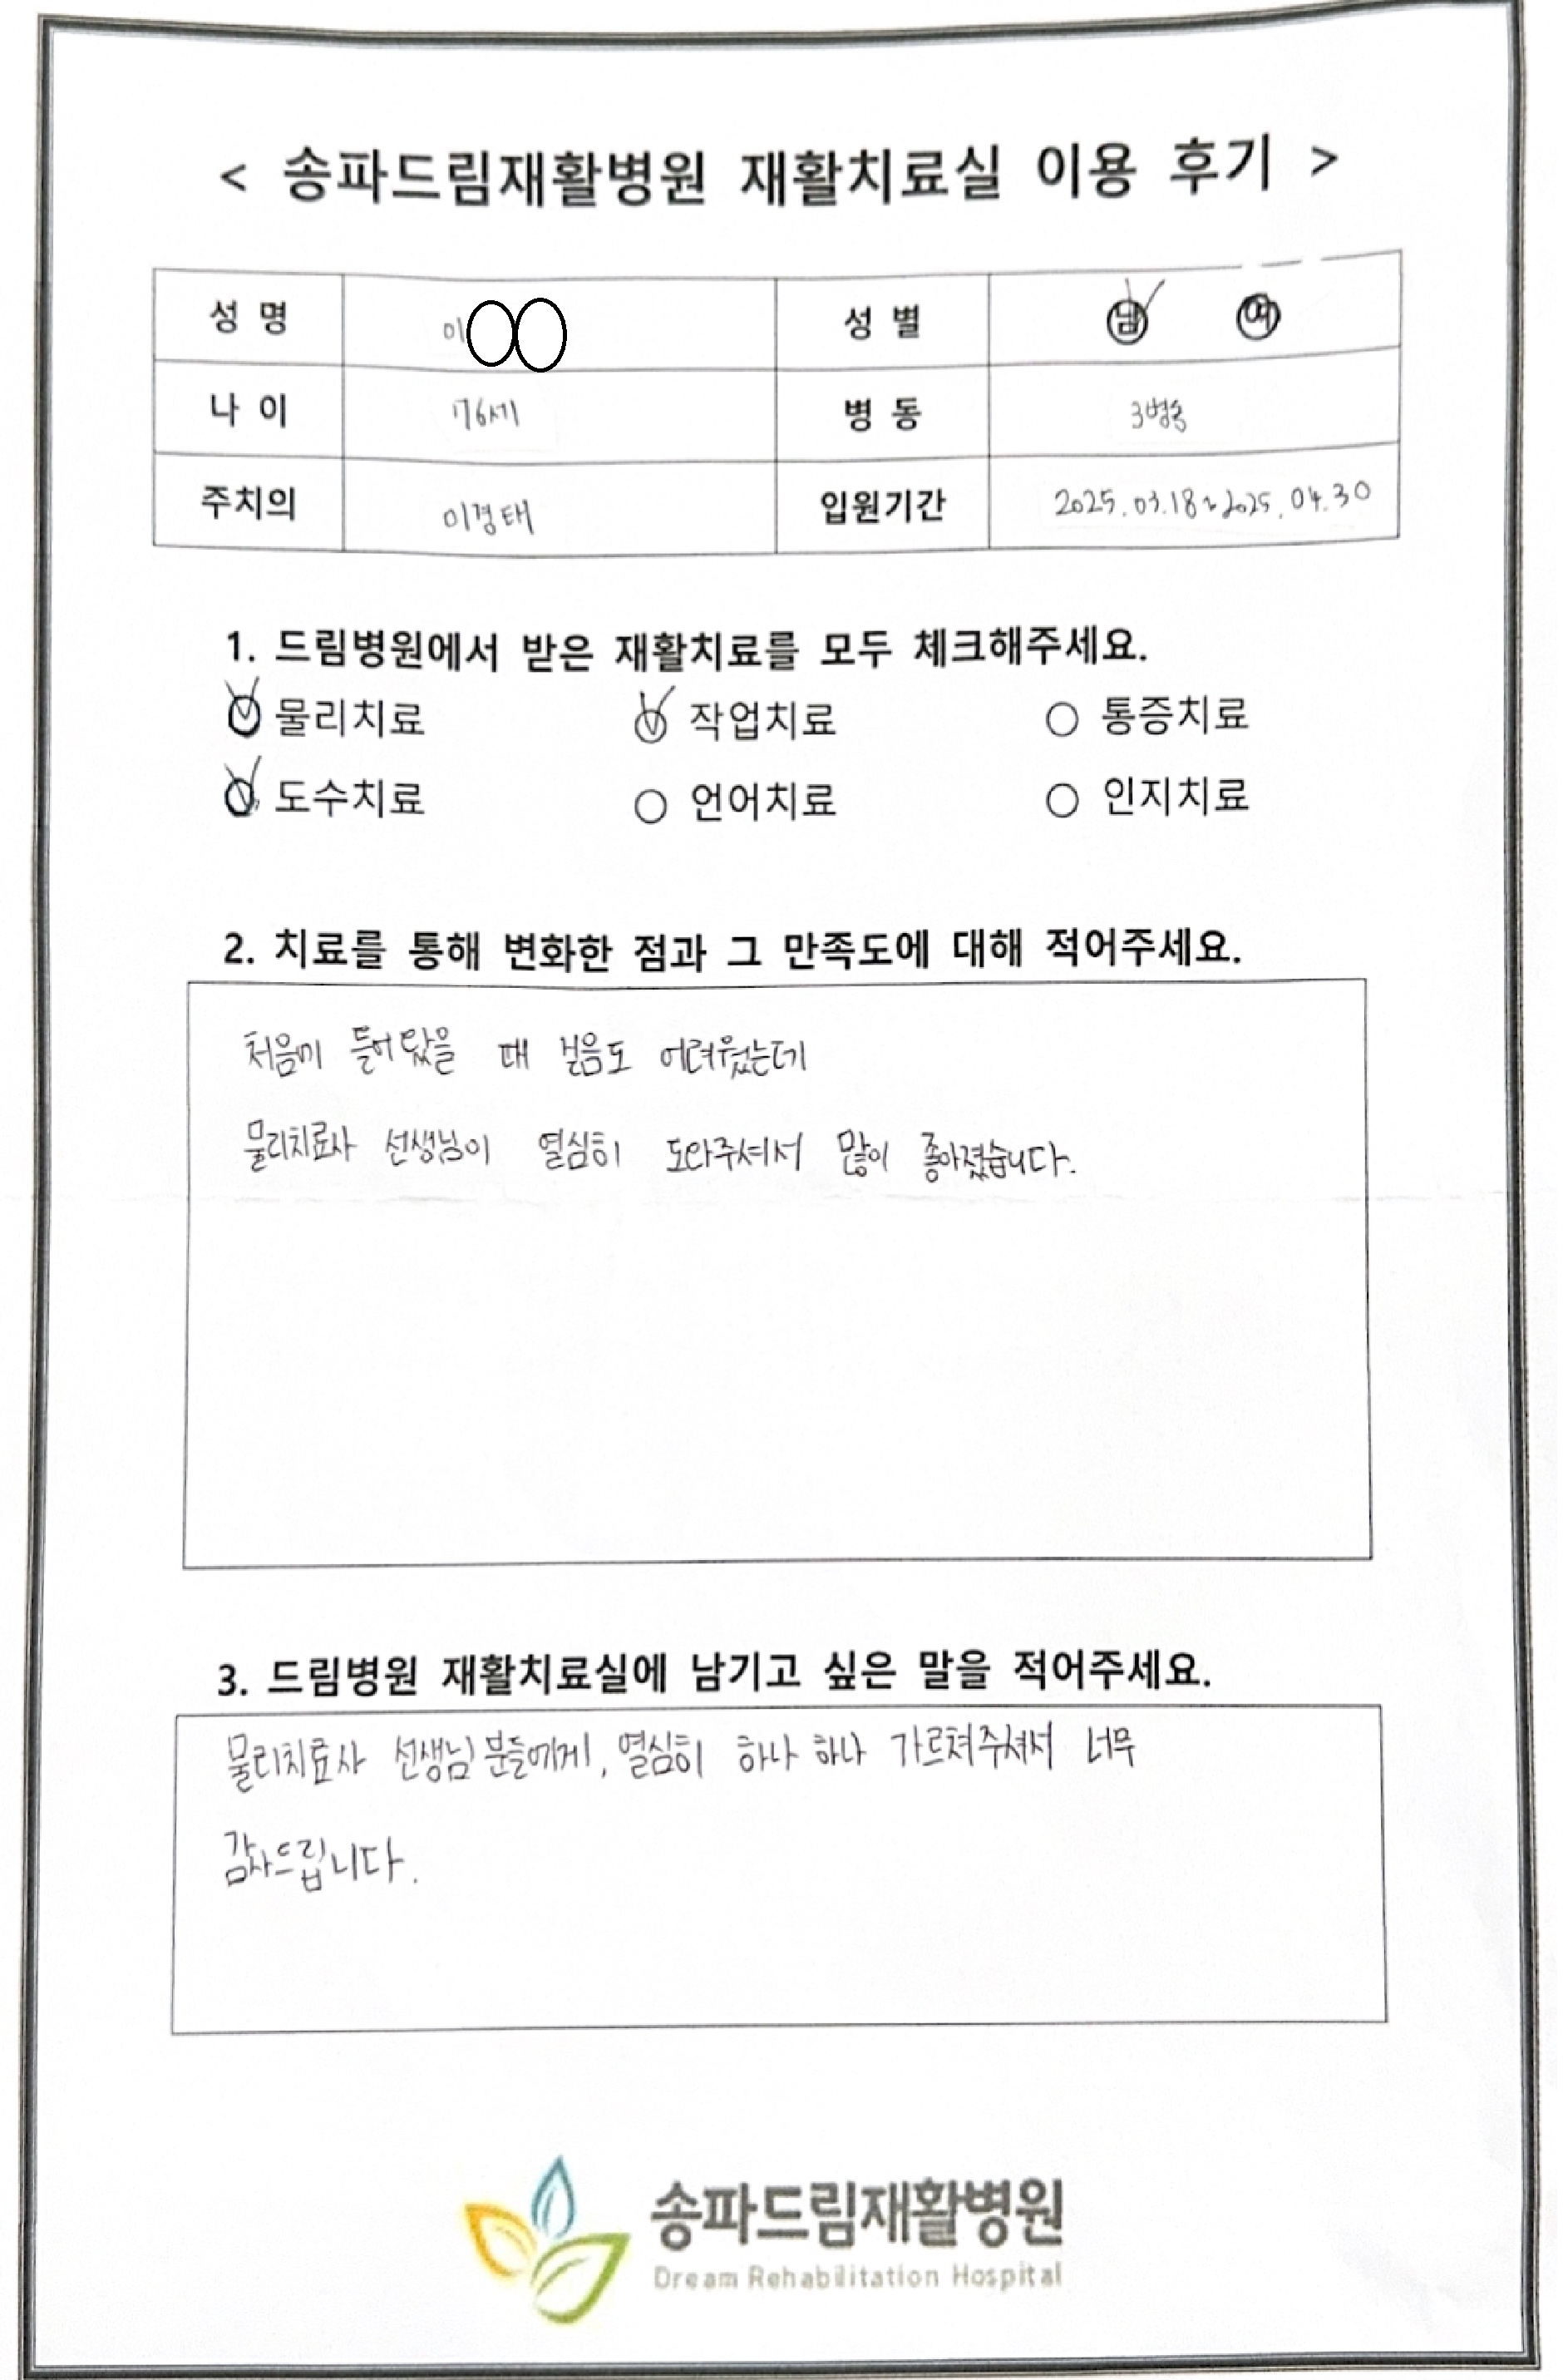 < 송파드림재활병원 재활치료실 이용 후기 >
성 명 이 성 별 남 여
나 이 76세 병 동 3병동
주치의 이경태 입원기간 2025.03.18~2025.04.30
1. 드림병원에서 받은 재활치료를 모두 체크해주세요.
물리치료 작업치료 통증치료
도수치료 언어치료 인지치료
2. 치료를 통해 변화한 점과 그 만족도에 대해 적어주세요.
처음에 들어왔을 때 걸음도 어려웠는데
물리치료사 선생님이 열심히 도와주셔서 많이 좋아졌습니다.
3. 드림병원 재활치료실에 남기고 싶은 말을 적어주세요.
물리치료사 선생님분들에게, 열심히 하나 하나 가르쳐주셔서 너무
감사드립니다.
송파드림재활병원
Dream Rehabilitation Hospital